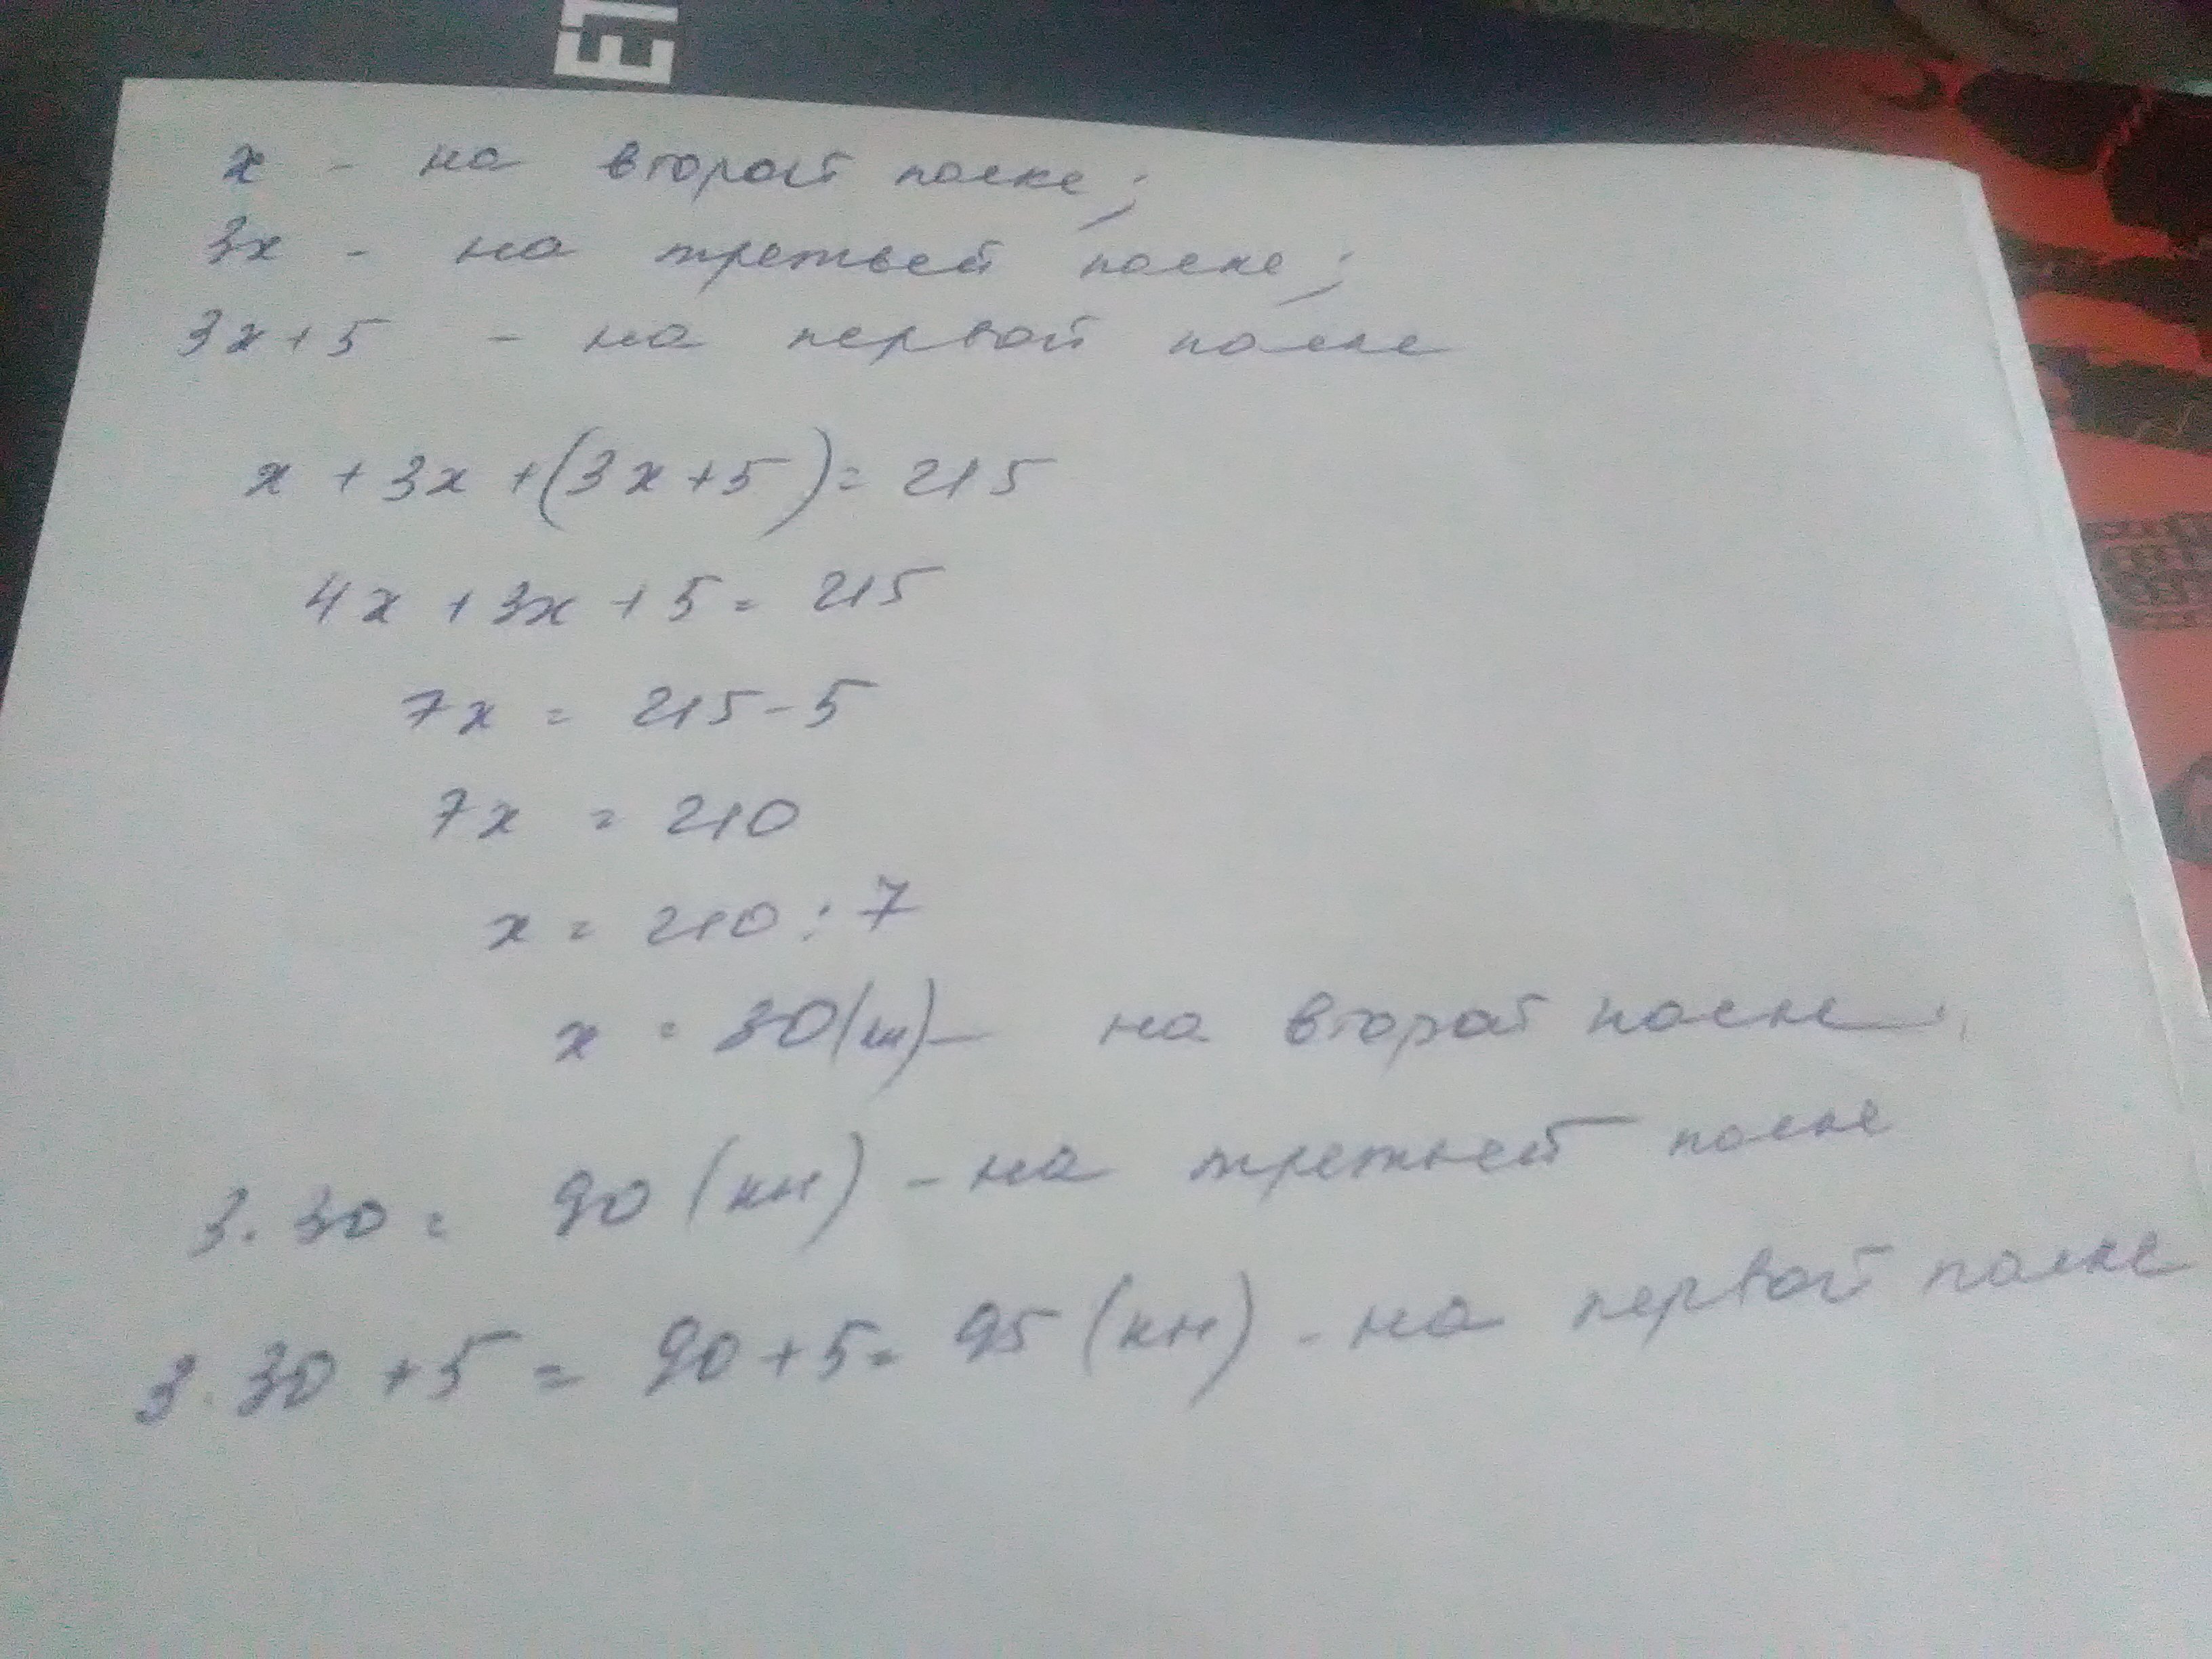 ET
x - на второй полке;
3x - на третьей полке;
3x+5 - на первой полке
x + 3x + (3x+5) = 215
4x + 3x + 5 = 215
7x = 215-5
7x = 210
x = 210 : 7
x = 30 (кн) - на второй полке.
3 · 30 = 90 (кн) - на третьей полке
3 · 30 + 5 = 90 + 5 = 95 (кн) - на первой полке